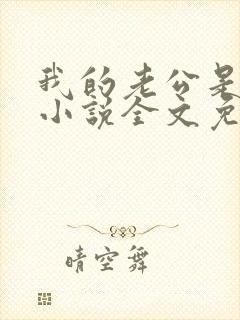 我的老公是
小说全文免
晴空舞